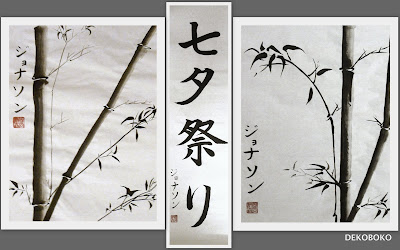 ジョナソン
七夕祭り
ジョナソン
ジョナソン
DEKOBOKO